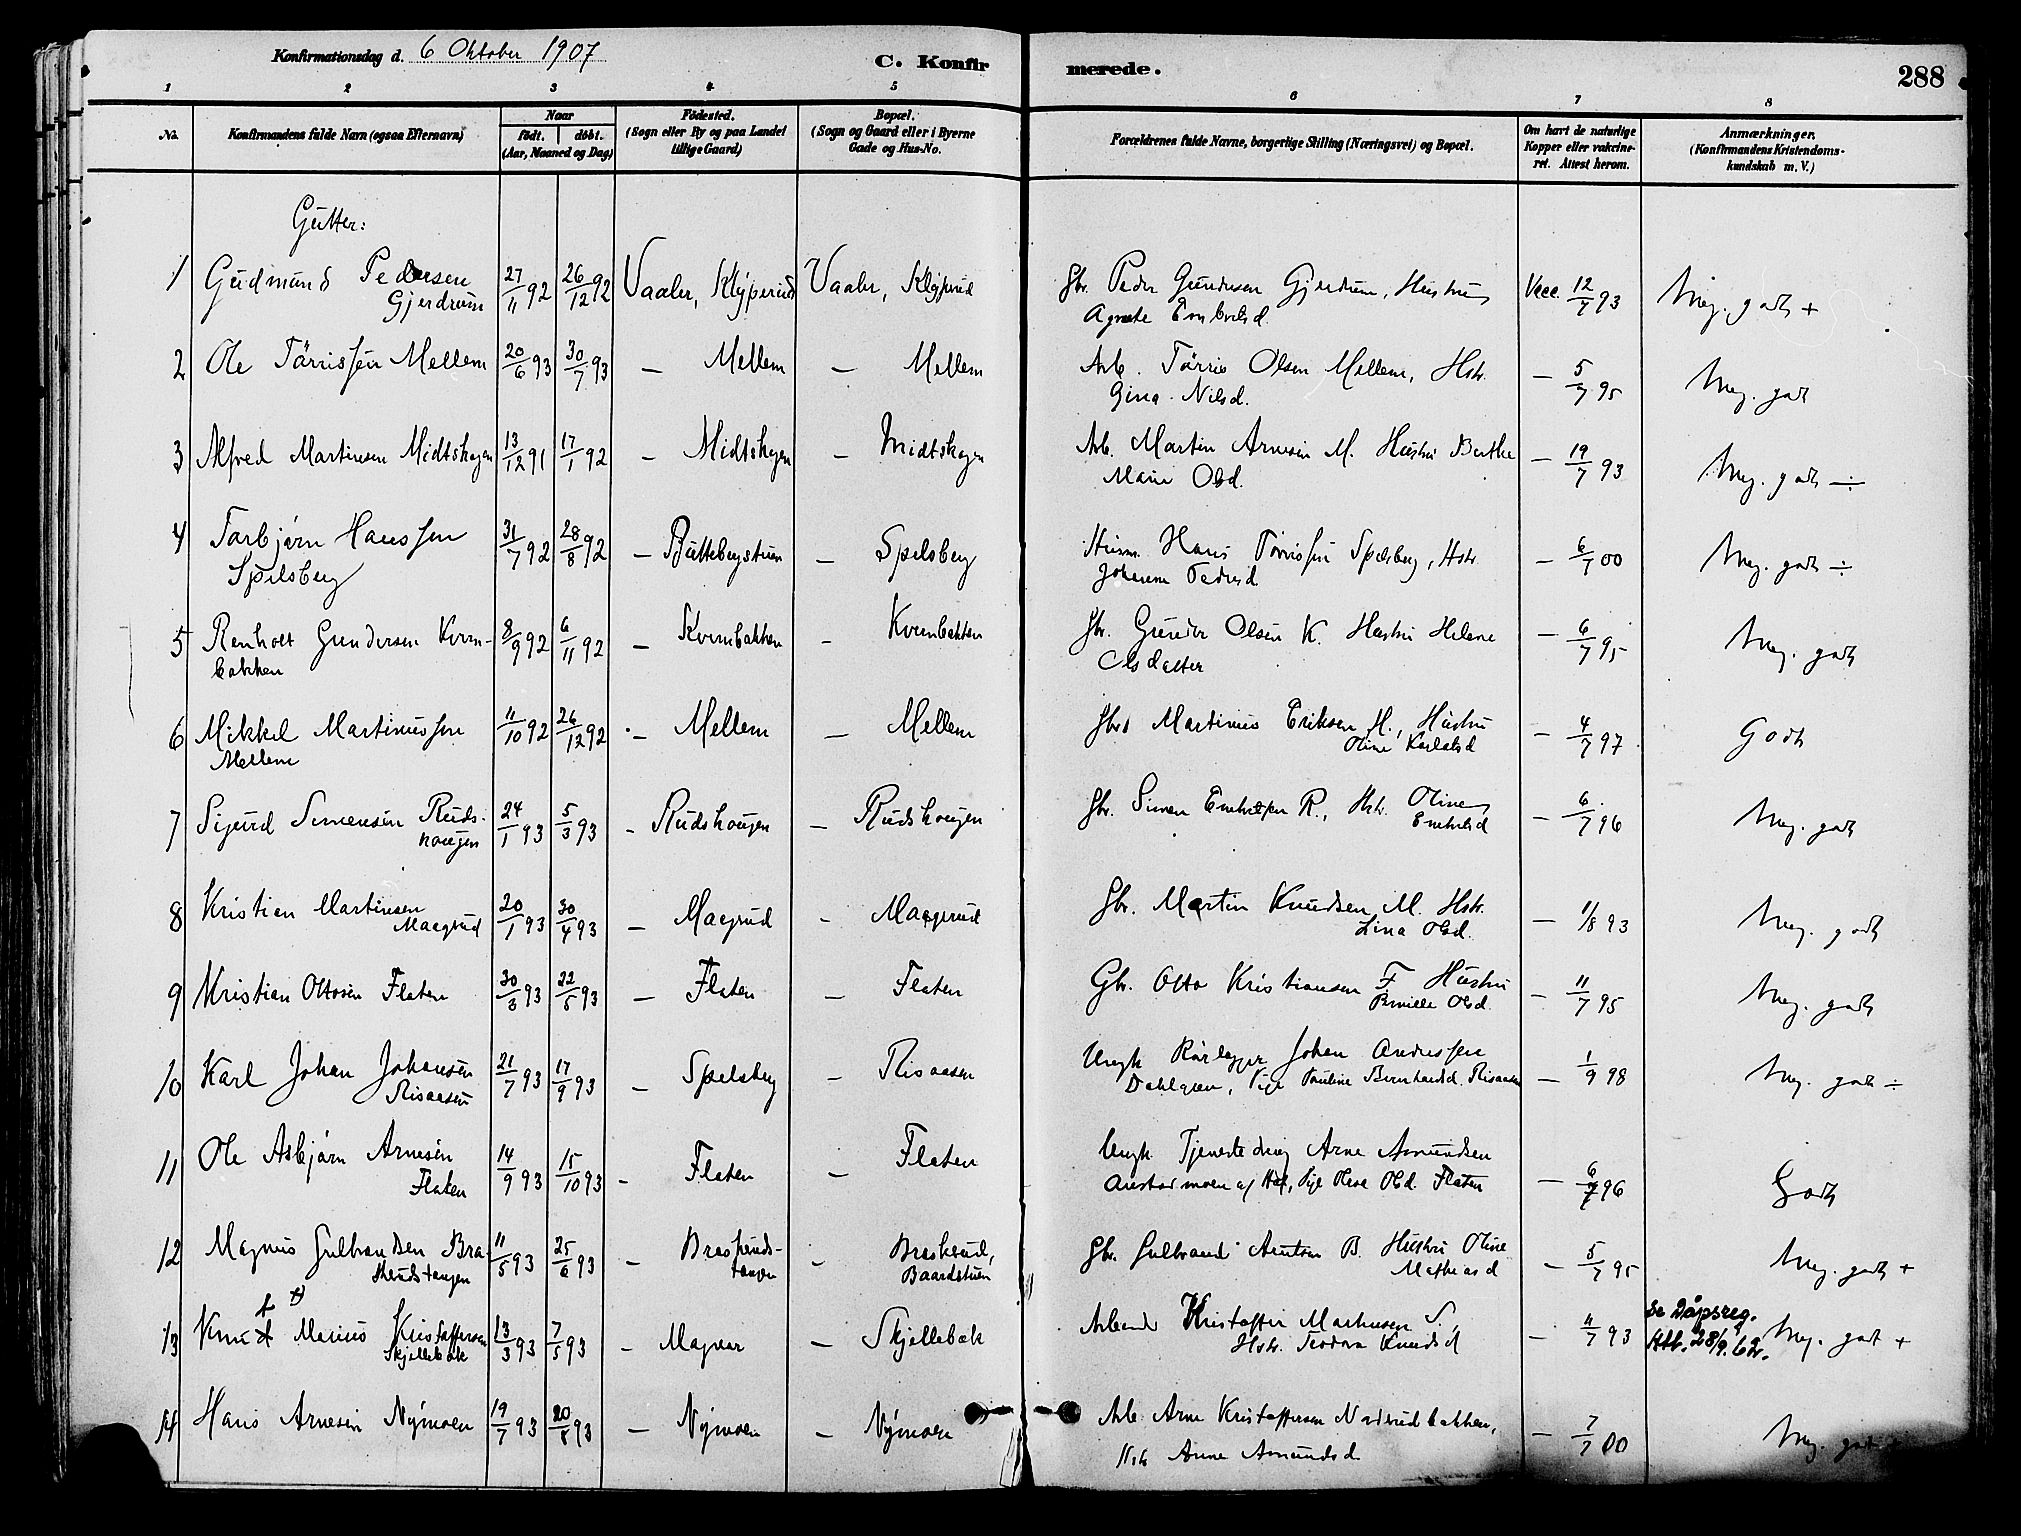 Konfirmationsdag d. 6 Oktober 1907
C. Konfirmerede.
288
1 2 3 4 5 6 7 8
No.
Konfirmandens fulde Navn (ogsaa Efternavn)
Naar
født. døbt.
(Aar, Maaned og Dag)
Fødested.
(Sogn eller By og paa Landet
tillige Gaard)
Bopæl.
(Sogn og Gaard eller i Byerne
Gade og Hus-No.
Forældrenes fulde Navne, borgerlige Stilling (Næringsvei) og Bopæl.
Om havt de naturlige
Kopper eller vakcine-
ret. Attest herom.
Anmærkninger.
(Konfirmandens Kristendoms-
kundskab m. V.)
Gutter:
1 Gudmund Pedersen 27/11 92 26/12 92 Vaaler, Klyperud Vaaler, Klyperud Gbr. Peder Gundersen Gjerdrum, Hustru Vacc. 12/7 93 Meg. godt +
Gjerdrum Agnete Embretsd.
2 Ole Tørrissen Mellem 20/6 93 30/7 93 — Mellem — Mellem Arb. Tørris Olsen Mellem, Hstr. — 5/7 95 Meg. godt
Gina Nilsd.
3 Alfred Martinsen Midtskogen 13/12 91 17/1 92 — Midtskogen — Midtskogen Arb. Martin Arnesen M. Hustru Berthe — 19/7 93 Meg. godt ÷
Marie Olsd.
4 Torbjørn Hanssen 31/7 92 28/8 92 — — Spelsberg Husm. Hans Tørrissen Spelsberg, Hstr. — 6/7 00 Meg. godt ÷
Spelsberg Johanne Pedersd.
5 Renholt Gundersen Kvern- 8/9 92 6/11 92 — Kvernbakken — Kvernbakken Gbr. Gunder Olsen K. Hustru Helene — 6/7 95 Meg. godt
bakken Olsdatter
6 Mikkel Martinussen 11/10 92 26/12 92 — Mellem — Mellem Gbr. Martinus Eriksen M., Hustru — 4/7 97 Godt
Mellem Oline
7 Sigurd Simensen Ruds- 24/1 93 5/3 93 — Rudshougen — Rudshougen Gbr. Simen Embretsen R., Hstr. Oline — 6/7 96 Meg. godt
hougen Embretsd
8 Kristian Martinsen 20/1 93 30/4 93 — Maegrud — Maegrud Gbr. Martin Knudsen M. Hstr. — 11/8 93 Meg. godt
Maegrud Lina Olsd.
9 Kristian Ottosen Flaten 30/3 93 22/5 93 — Flaten — Flaten Gbr. Otto Kristiansen F Hustru — 11/7 95 Meg. godt
Pernille Olsd.
10 Karl Johan Johansen 21/7 93 17/9 93 — Spelsberg — Risaasen Ungk. Rørlegger Johan Andressen — 1/9 98 Meg. godt ÷
Risaasen Dahlgren, Pige Pauline Bernhardsd. Risaasen
11 Ole Asbjørn Arnesen 14/9 93 15/10 93 — Flaten — Flaten Ungk. Tjenestedreng Arne Amundsen — 6/7 96 Godt
Flaten Aurstadmoen af Hof, Pige Olsd. Flaten
12 Magnus Gulbrandsen Bra- 11/5 93 25/6 93 — Braskeruds- — Braskerud, Gbr. Gulbrand B. Hustru Oline — 5/7 95 Meg. godt +
skerudstangen tangen Baardstuen Mathiasd
13 Knut Marius Kristoffersen 13/3 93 7/5 93 — — Skjellebæk Arbeid Kristoffer Markusen S., — 11/7 93 Meg. godt +
Skjellebæk Hstr. Teodora Knudsd
se Dåpsreg.
Att. 28/9. 62.
14 Hans Arnesen Nymoen 19/7 93 20/8 93 — Nymoen — Nymoen Arb. Arne Kristoffersen Nordrudbakken, — 7/7 00 Meg. godt
Hstr Anne Amundsd